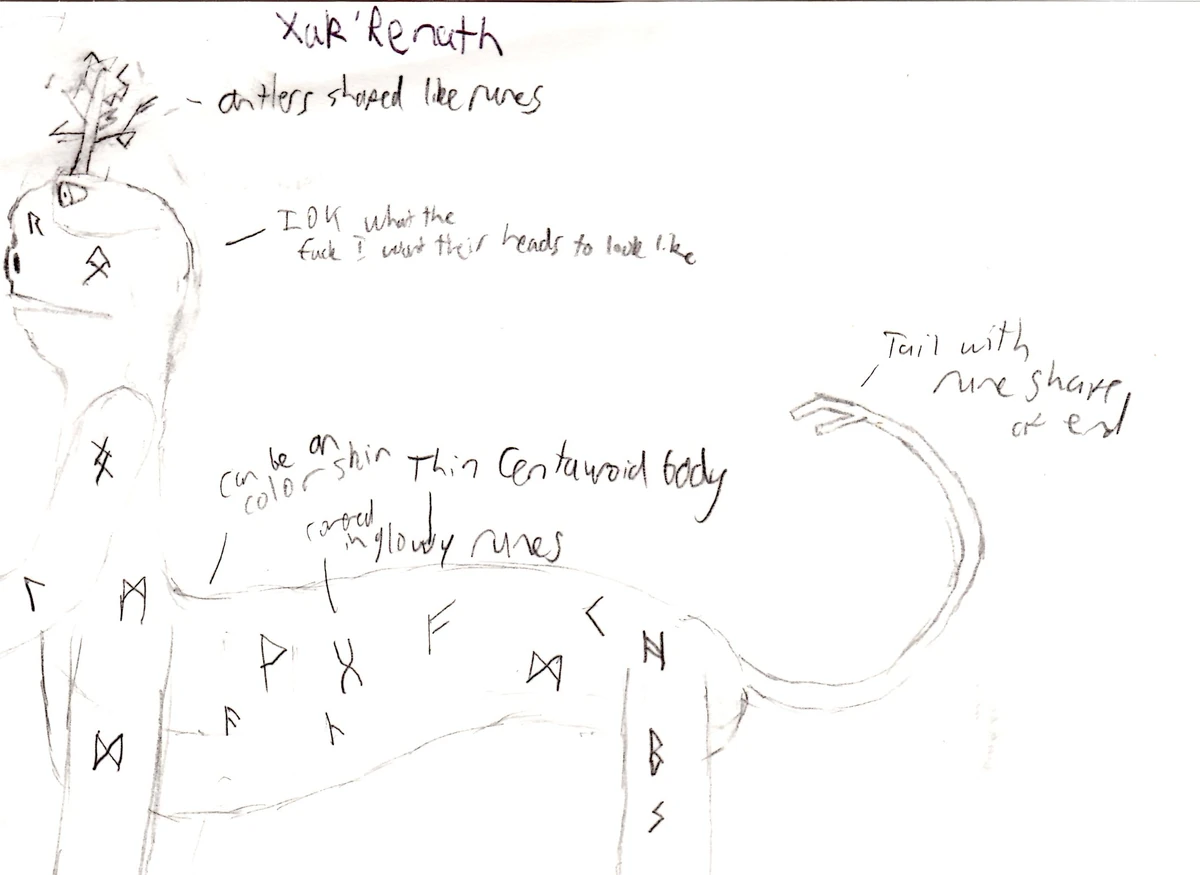 Xak'Renath
antlers shaped like runes
IDK what the
fuck I want their heads to look like
Tail with
rune shape
at end
can be an
color skin
Thin Centauroid body
covered
in glowy runes
ᚱ
ᛟ
ᛝ
ᛚ
ᛗ
ᚹ
ᚷ
ᚠ
ᛞ
ᚲ
ᚺ
ᚨ
ᛚ
ᛞ
ᛒ
ᛊ